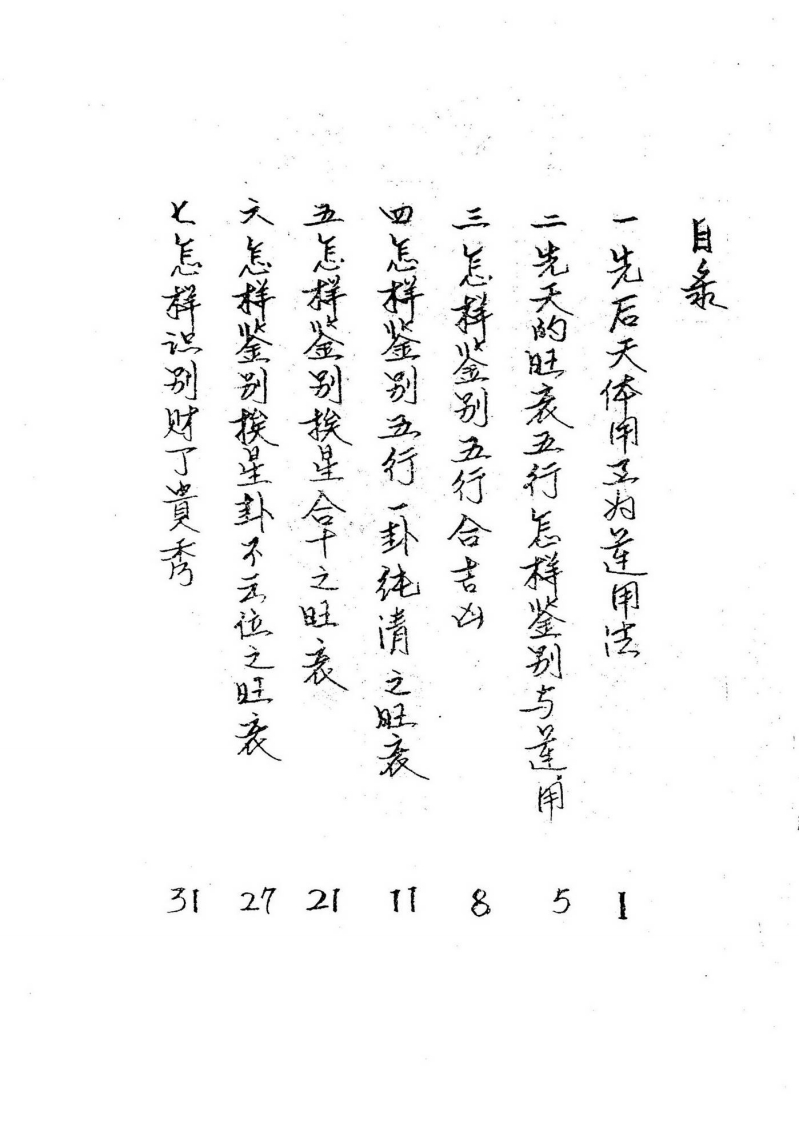 目录
一先后天体用互为运用法 1
二先天的旺衰五行怎样鉴别与运用 5
三怎样鉴别五行合吉凶 8
四怎样鉴别五行一卦纯清之旺衰 11
五怎样鉴别挨星合十之旺衰 21
六怎样鉴别挨星卦不云位之旺衰 27
七怎样识别财丁貴秀 31